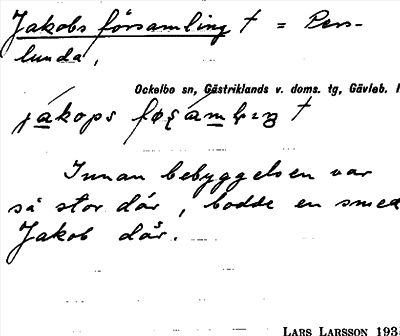 Jakobs församling † = Pers-
lunda,
Ockelbo sn, Gästriklands v. doms. tg, Gävleb. l
Innan bebyggelsen var
så stor där, bodde en smed
Jakob där.
LARS LARSSON 193